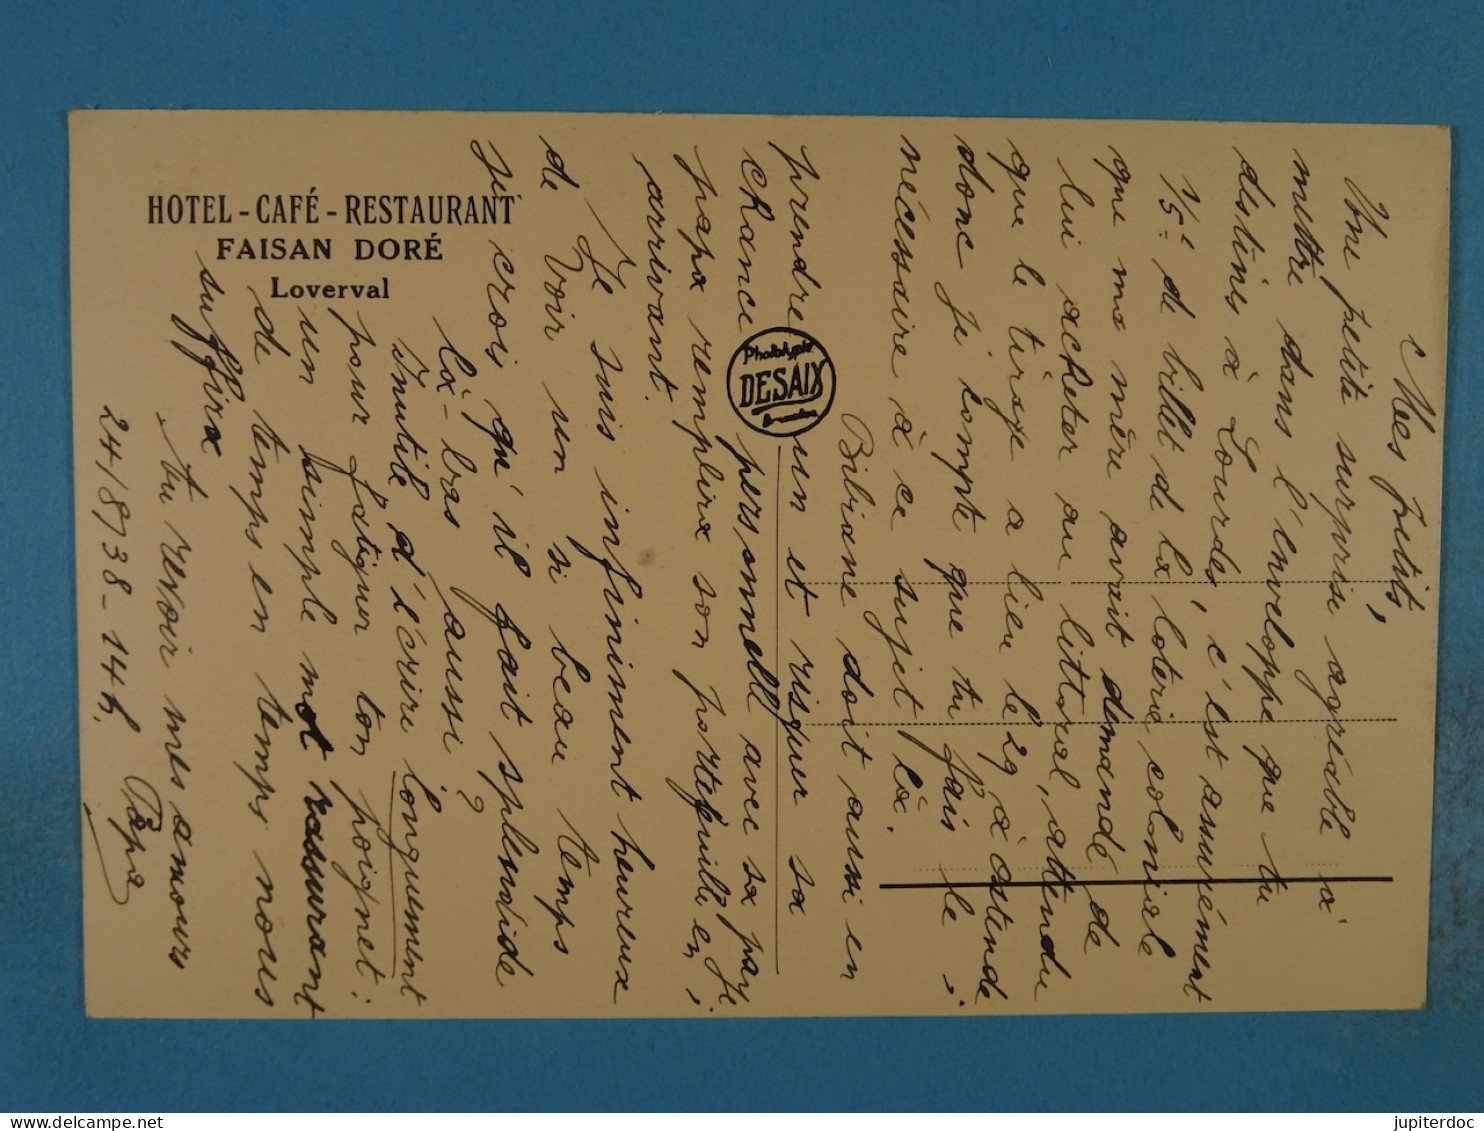 HOTEL - CAFÉ - RESTAURANT
FAISAN DORÉ
Loverval
Photolypie
DESAIX
Bruxelles
Mes petits,
Une petite surprise agréable à
mettre dans l'enveloppe que tu
destines à Lourdes, c'est assurément
1/5e de billet de la loterie coloniale
que ma mère avait demandé de
lui acheter au littoral, attendu
que le tirage a lieu le 29 à Ostende;
donc je compte que tu fais le
nécessaire à ce sujet là.
Bibiane doit aussi en
prendre un et risquer sa
chance personnelle avec sa pay
papa remplira son portefeuille en
arrivant.
Je suis infiniment heureux
de voir un si beau temps
je crois qu'il fait splendide
là-bas aussi?
Inutile d'écrire longuement
pour fatiguer ton poignet:
un simple mot rassurant
de temps en temps nous
suffira
Au revoir mes amours
24/8/38 - 14h. Papa
jupiterdoc